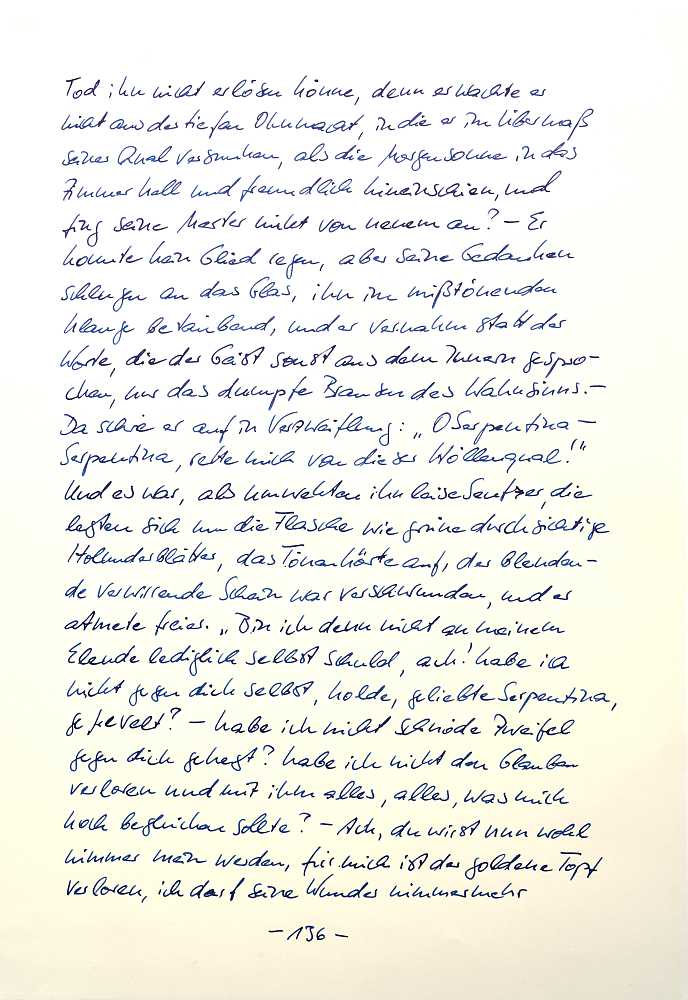 Tod ihn nicht erlösen könne, denn erwachte er
nicht aus der tiefen Ohnmacht, in die er im Übermaß
seiner Qual versunken, als die Morgensonne in das
Zimmer hell und freundlich hineinschien, und
fing seine Marter nicht von neuem an? – Er
konnte kein Glied regen, aber seine Gedanken
schlugen an das Glas, ihn im mißtönenden
Klange betäubend, und er vernahm statt der
Worte, die der Geist sonst aus dem Innern gespro-
chen, nur das dumpfe Brausen des Wahnsinns. –
Da schrie er auf in Verzweiflung: „O Serpentina –
Serpentina, rette mich von dieser Höllenqual!"
Und es war, als umwehten ihn leise Seufzer, die
legten sich um die Flasche wie grüne durchsichtige
Holunderblätter, das Tönen hörte auf, der blenden-
de verwirrende Schein war verschwunden, und er
atmete freier. „Bin ich denn nicht an meinem
Elende lediglich selbst schuld, ach! habe ich
nicht gegen dich selbst, holde, geliebte Serpentina,
gefrevelt? – habe ich nicht schnöde Zweifel
gegen dich gehegt? habe ich nicht den Glauben
verloren und mit ihm alles, alles, was mich
hoch beglücken sollte? – Ach, du wirst nun wohl
nimmer mein werden, für mich ist der goldene Topf
verloren, ich darf seine Wunder nimmermehr
– 136 –